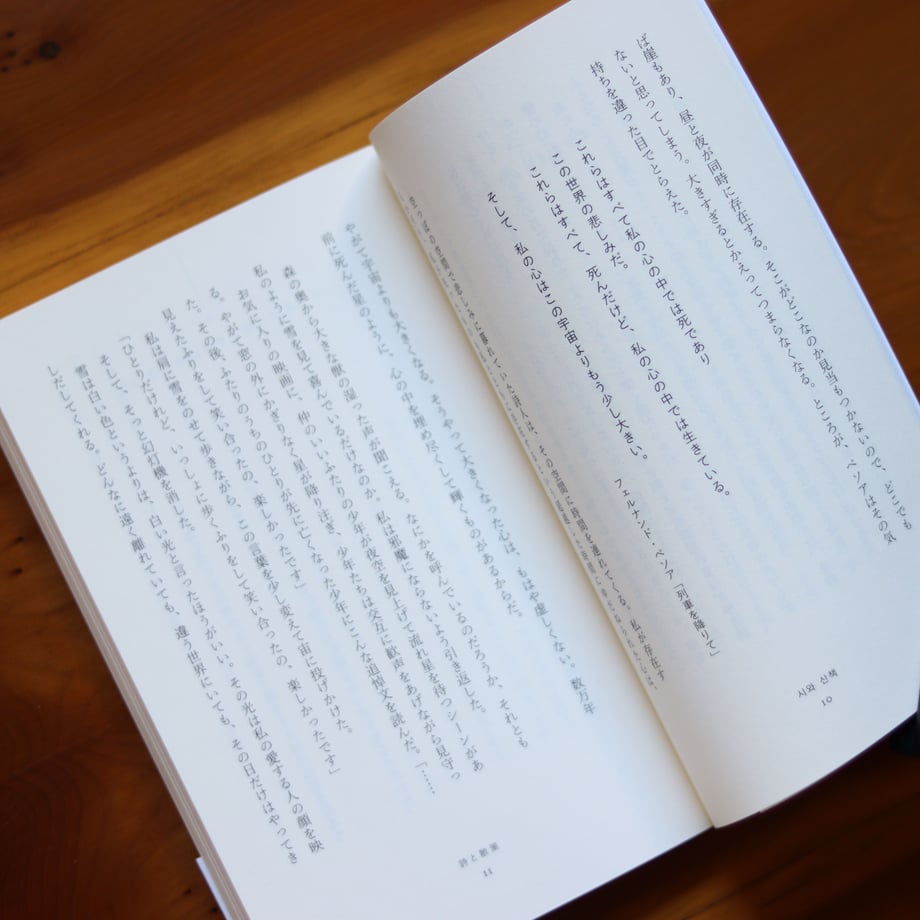 ば崖もあり、昼と夜が同時に存在する。そこがどこなのか見当もつかないので、どこでも
ないと思ってしまう。大きすぎるとかえってつまらなくなる。ところが、ペソアはその気
持ちを違った目でとらえた。
これらはすべて私の心の中では死であり
この世界の悲しみだ。
これらはすべて、死んだけど、私の心の中では生きている。
そして、私の心はこの宇宙よりもう少し大きい。
フェルナンド・ペソア「列車を降りて」
空っぽの空間で悲しみに暮れていた詩人は、その空間に時間を連れてくる。私が存在す
시와 산책
10
やがて宇宙よりも大きくなる。そうやって大きくなった心は、もはや虚しくない。数万年
前に死んだ星のように、心の中を埋め尽くして輝くものがあるからだ。
森の奥から大きな獣の湿った声が聞こえる。なにかを呼んでいるのだろうか、それとも
私のように雪を見て喜んでいるだけなのか。私は邪魔にならないよう引き返した。
お気に入りの映画に、仲のいいふたりの少年が夜空を見上げて流れ星を待つシーンがあ
る。やがて窓の外にかぎりなく星が降り注ぎ、少年たちは交互に歓声をあげながら見守っ
た。その後、ふたりのうちのひとりが先に亡くなった少年にこんな追悼文を読んだ。「……
見えたふりをして笑い合ったの、楽しかったです」
私は肩に雪をのせて歩きながら、この言葉を少し変えて宙に投げかけた。
「ひとりだけれど、いっしょに歩くふりをして笑い合ったの、楽しかったです」
そして、そっと幻灯機を消した。
雪は白い色というよりは、白い光と言ったほうがいい。その光は私の愛する人の顔を映
しだしてくれる。どんなに遠く離れていても、違う世界にいても、その日だけはやってき
詩と散策
11